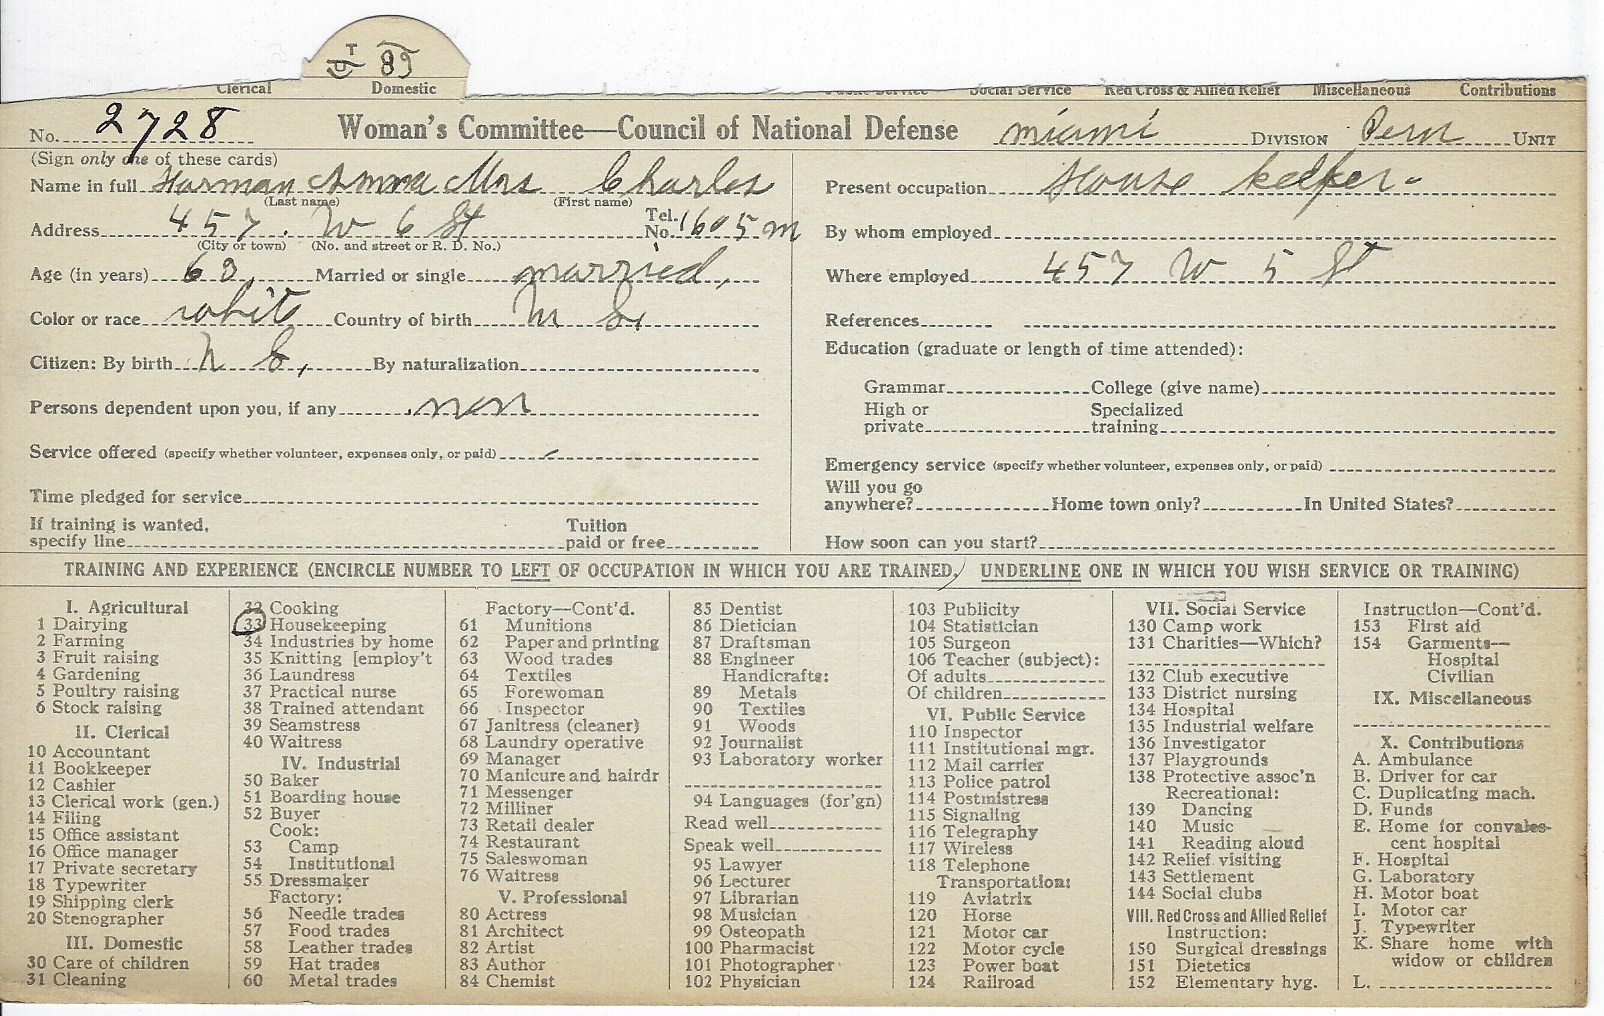 Clerical Domestic Social Service Red Cross & Allied Relief Miscellaneous Contributions
No. 2728 Woman's Committee—Council of National Defense Miami DIVISION Peru UNIT
(Sign only one of these cards)
Name in full Harman Anna Mrs Charles
(Last name) (First name)
Address 457. W 6 St Tel. No. 1605 M
(City or town) (No. and street or R. D. No.)
Age (in years) Married or single married,
Color or race white Country of birth
Citizen: By birth By naturalization
Persons dependent upon you, if any non
Service offered (specify whether volunteer, expenses only, or paid)
Time pledged for service
If training is wanted, specify line Tuition paid or free
Present occupation House keeper
By whom employed
Where employed 457 W 5 St
References
Education (graduate or length of time attended):
Grammar College (give name)
High or private Specialized training
Emergency service (specify whether volunteer, expenses only, or paid)
Will you go anywhere? Home town only? In United States?
How soon can you start?
TRAINING AND EXPERIENCE (ENCIRCLE NUMBER TO LEFT OF OCCUPATION IN WHICH YOU ARE TRAINED, UNDERLINE ONE IN WHICH YOU WISH SERVICE OR TRAINING)
I. Agricultural
1 Dairying
2 Farming
3 Fruit raising
4 Gardening
5 Poultry raising
6 Stock raising
II. Clerical
10 Accountant
11 Bookkeeper
12 Cashier
13 Clerical work (gen.)
14 Filing
15 Office assistant
16 Office manager
17 Private secretary
18 Typewriter
19 Shipping clerk
20 Stenographer
III. Domestic
30 Care of children
31 Cleaning
32 Cooking
33 Housekeeping
34 Industries by home
35 Knitting [employ't
36 Laundress
37 Practical nurse
38 Trained attendant
39 Seamstress
40 Waitress
IV. Industrial
50 Baker
51 Boarding house
52 Buyer
Cook:
53 Camp
54 Institutional
55 Dressmaker
Factory:
56 Needle trades
57 Food trades
58 Leather trades
59 Hat trades
60 Metal trades
Factory—Cont'd.
61 Munitions
62 Paper and printing
63 Wood trades
64 Textiles
65 Forewoman
66 Inspector
67 Janitress (cleaner)
68 Laundry operative
69 Manager
70 Manicure and hairdr
71 Messenger
72 Milliner
73 Retail dealer
74 Restaurant
75 Saleswoman
76 Waitress
V. Professional
80 Actress
81 Architect
82 Artist
83 Author
84 Chemist
85 Dentist
86 Dietician
87 Draftsman
88 Engineer
Handicrafts:
89 Metals
90 Textiles
91 Woods
92 Journalist
93 Laboratory worker
94 Languages (for'gn)
Read well
Speak well
95 Lawyer
96 Lecturer
97 Librarian
98 Musician
99 Osteopath
100 Pharmacist
101 Photographer
102 Physician
103 Publicity
104 Statistician
105 Surgeon
106 Teacher (subject):
Of adults
Of children
VI. Public Service
110 Inspector
111 Institutional mgr.
112 Mail carrier
113 Police patrol
114 Postmistress
115 Signaling
116 Telegraphy
117 Wireless
118 Telephone
Transportation:
119 Aviatrix
120 Horse
121 Motor car
122 Motor cycle
123 Power boat
124 Railroad
VII. Social Service
130 Camp work
131 Charities—Which?
132 Club executive
133 District nursing
134 Hospital
135 Industrial welfare
136 Investigator
137 Playgrounds
138 Protective assoc'n
Recreational:
139 Dancing
140 Music
141 Reading aloud
142 Relief visiting
143 Settlement
144 Social clubs
VIII. Red Cross and Allied Relief
Instruction:
150 Surgical dressings
151 Dietetics
152 Elementary hyg.
Instruction—Cont'd.
153 First aid
154 Garments—
Hospital
Civilian
IX. Miscellaneous
X. Contributions
A. Ambulance
B. Driver for car
C. Duplicating mach.
D. Funds
E. Home for convales-
cent hospital
F. Hospital
G. Laboratory
H. Motor boat
I. Motor car
J. Typewriter
K. Share home with
widow or children
L.